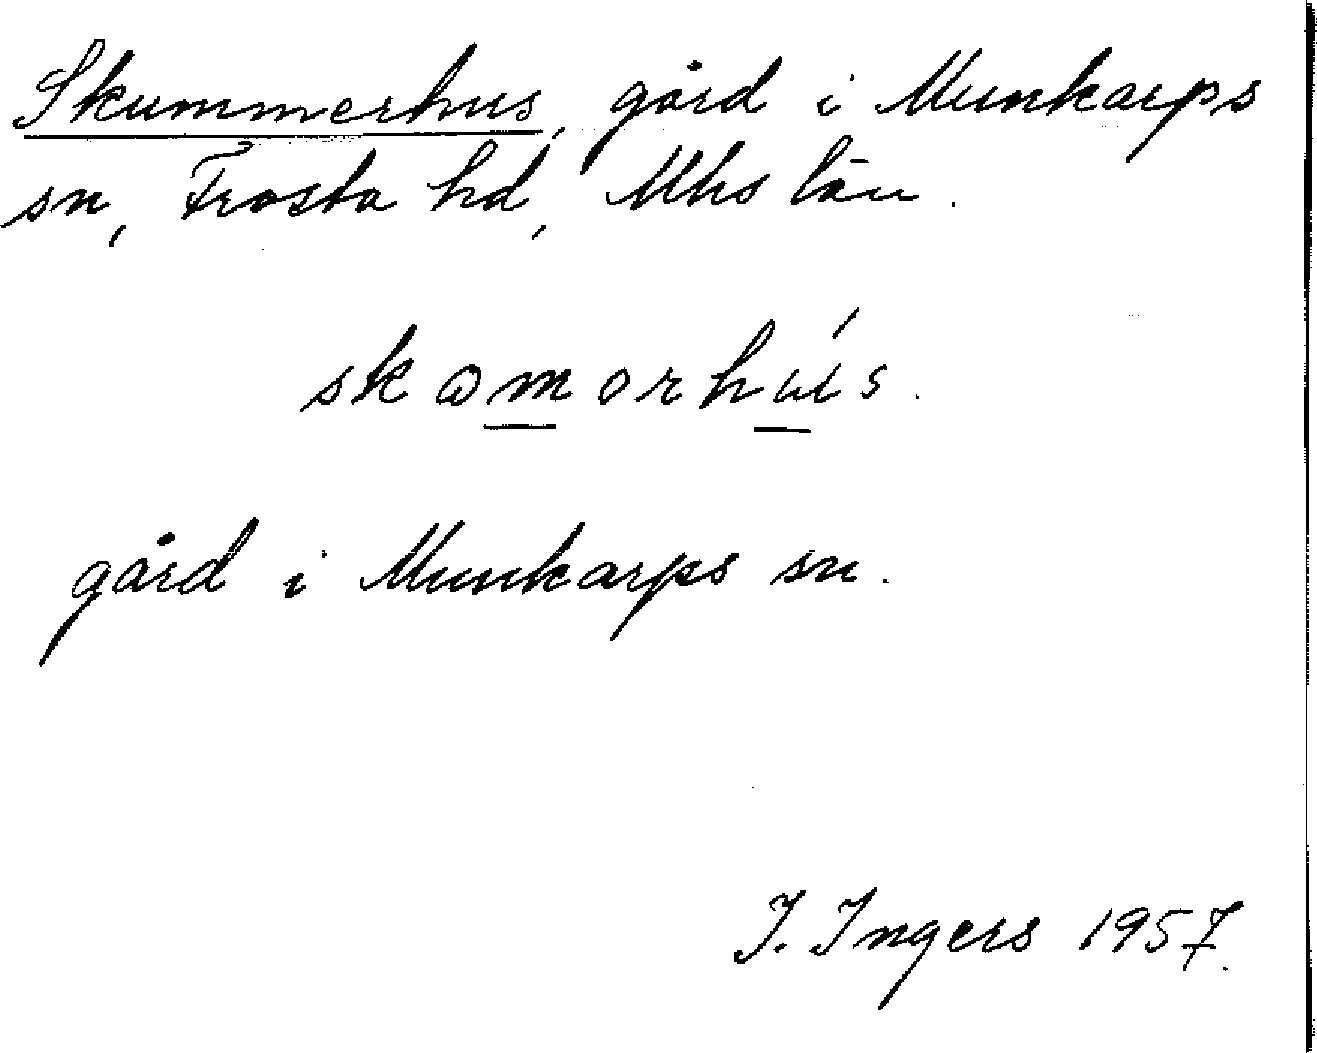 Skummerhus, gård i Munkarps
sn, Frosta hd, Mhs län.
skomorhús.
gård i Munkarps sn.
I. Ingers 1957.